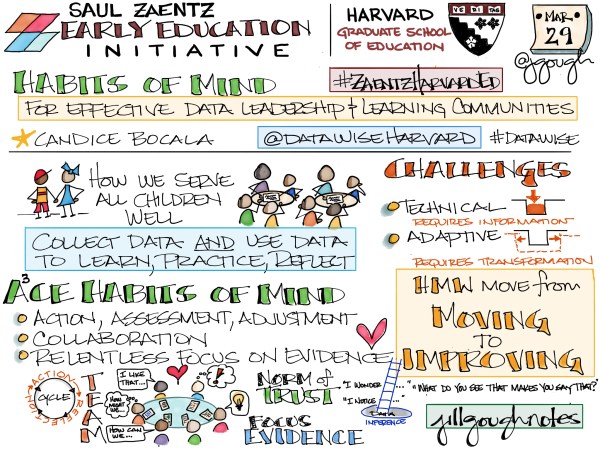 SAUL ZAENTZ
EARLY EDUCATION
INITIATIVE
HARVARD
GRADUATE SCHOOL
OF EDUCATION
MAR
29
@jgough
HABITS OF MIND
#ZAENTZHARVARDED
FOR EFFECTIVE DATA LEADERSHIP & LEARNING COMMUNITIES
CANDICE BOCALA
@DATAWISEHARVARD
#DATAWISE
HOW WE SERVE
ALL CHILDREN
WELL
COLLECT DATA AND USE DATA
TO LEARN, PRACTICE, REFLECT
CHALLENGES
TECHNICAL
REQUIRES INFORMATION
ADAPTIVE
REQUIRES TRANSFORMATION
A³CE HABITS OF MIND
ACTION, ASSESSMENT, ADJUSTMENT
COLLABORATION
RELENTLESS FOCUS ON EVIDENCE
HMW MOVE from
MOVING
TO
IMPROVING
ACTION
REFLECTION
CYCLE
TEAM
I LIKE
THAT...
HOW MIGHT
WE...
HOW CAN
WE...
...!
?
NORM of
TRUST
FOCUS
EVIDENCE
"I WONDER...
"I NOTICE...
DATA
INFERENCE
"WHAT DO YOU SEE THAT MAKES YOU SAY THAT?"
jillgoughnotes